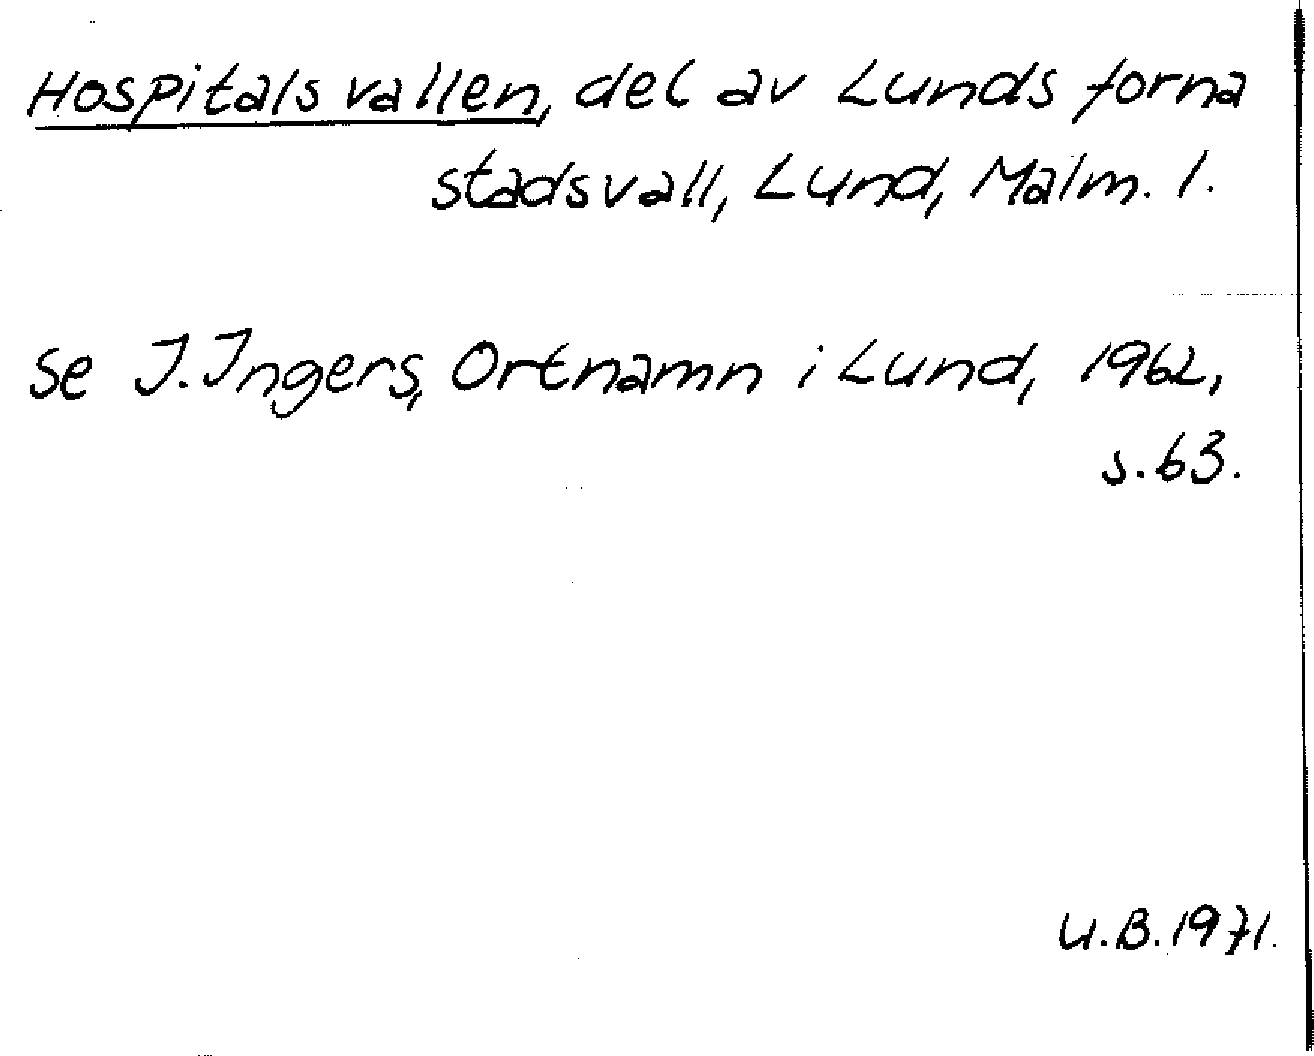 Hospitalsvallen, del av Lunds forna
stadsvall, Lund, Malm. l.
se I. Ingers, Ortnamn i Lund, 1962,
s. 63.
U.B. 1971.